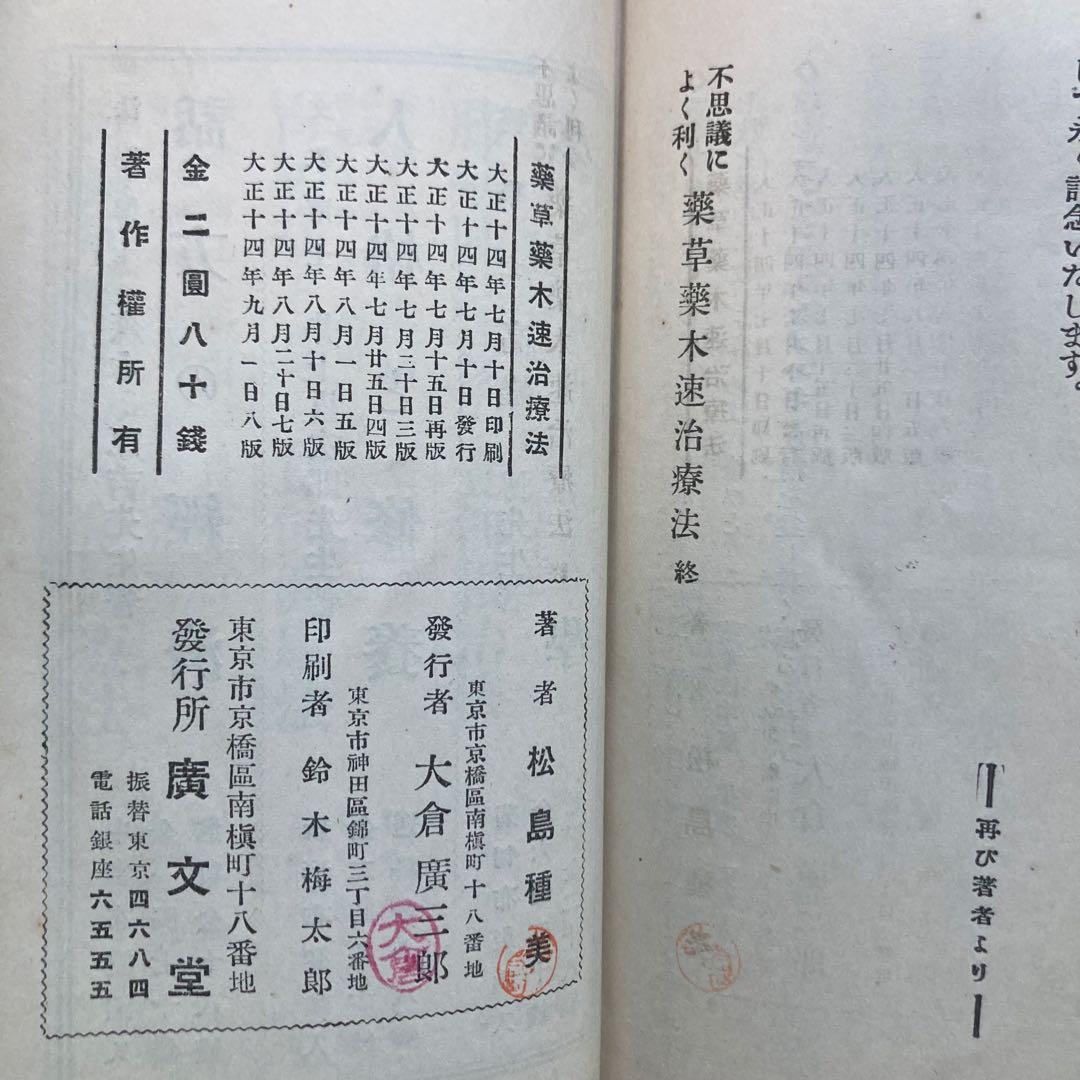 永く記念いたします。
―再び著者より―
不思議に
よく利く
藥草藥木速治療法 終
藥草藥木速治療法
大正十四年七月十日印刷
大正十四年七月十日發行
大正十四年七月十五日再版
大正十四年七月二十日三版
大正十四年七月廿五日四版
大正十四年八月一日五版
大正十四年八月十日六版
大正十四年八月二十日七版
大正十四年九月一日八版
金二圓八十錢
著作權所有
著者 松島種美
東京市京橋區南槇町十八番地
發行者 大倉廣三郎
大倉
東京市神田區錦町三丁目六番地
印刷者 鈴木梅太郎
東京市京橋區南槇町十八番地
發行所 廣文堂
振替東京四六八四
電話銀座六五五五